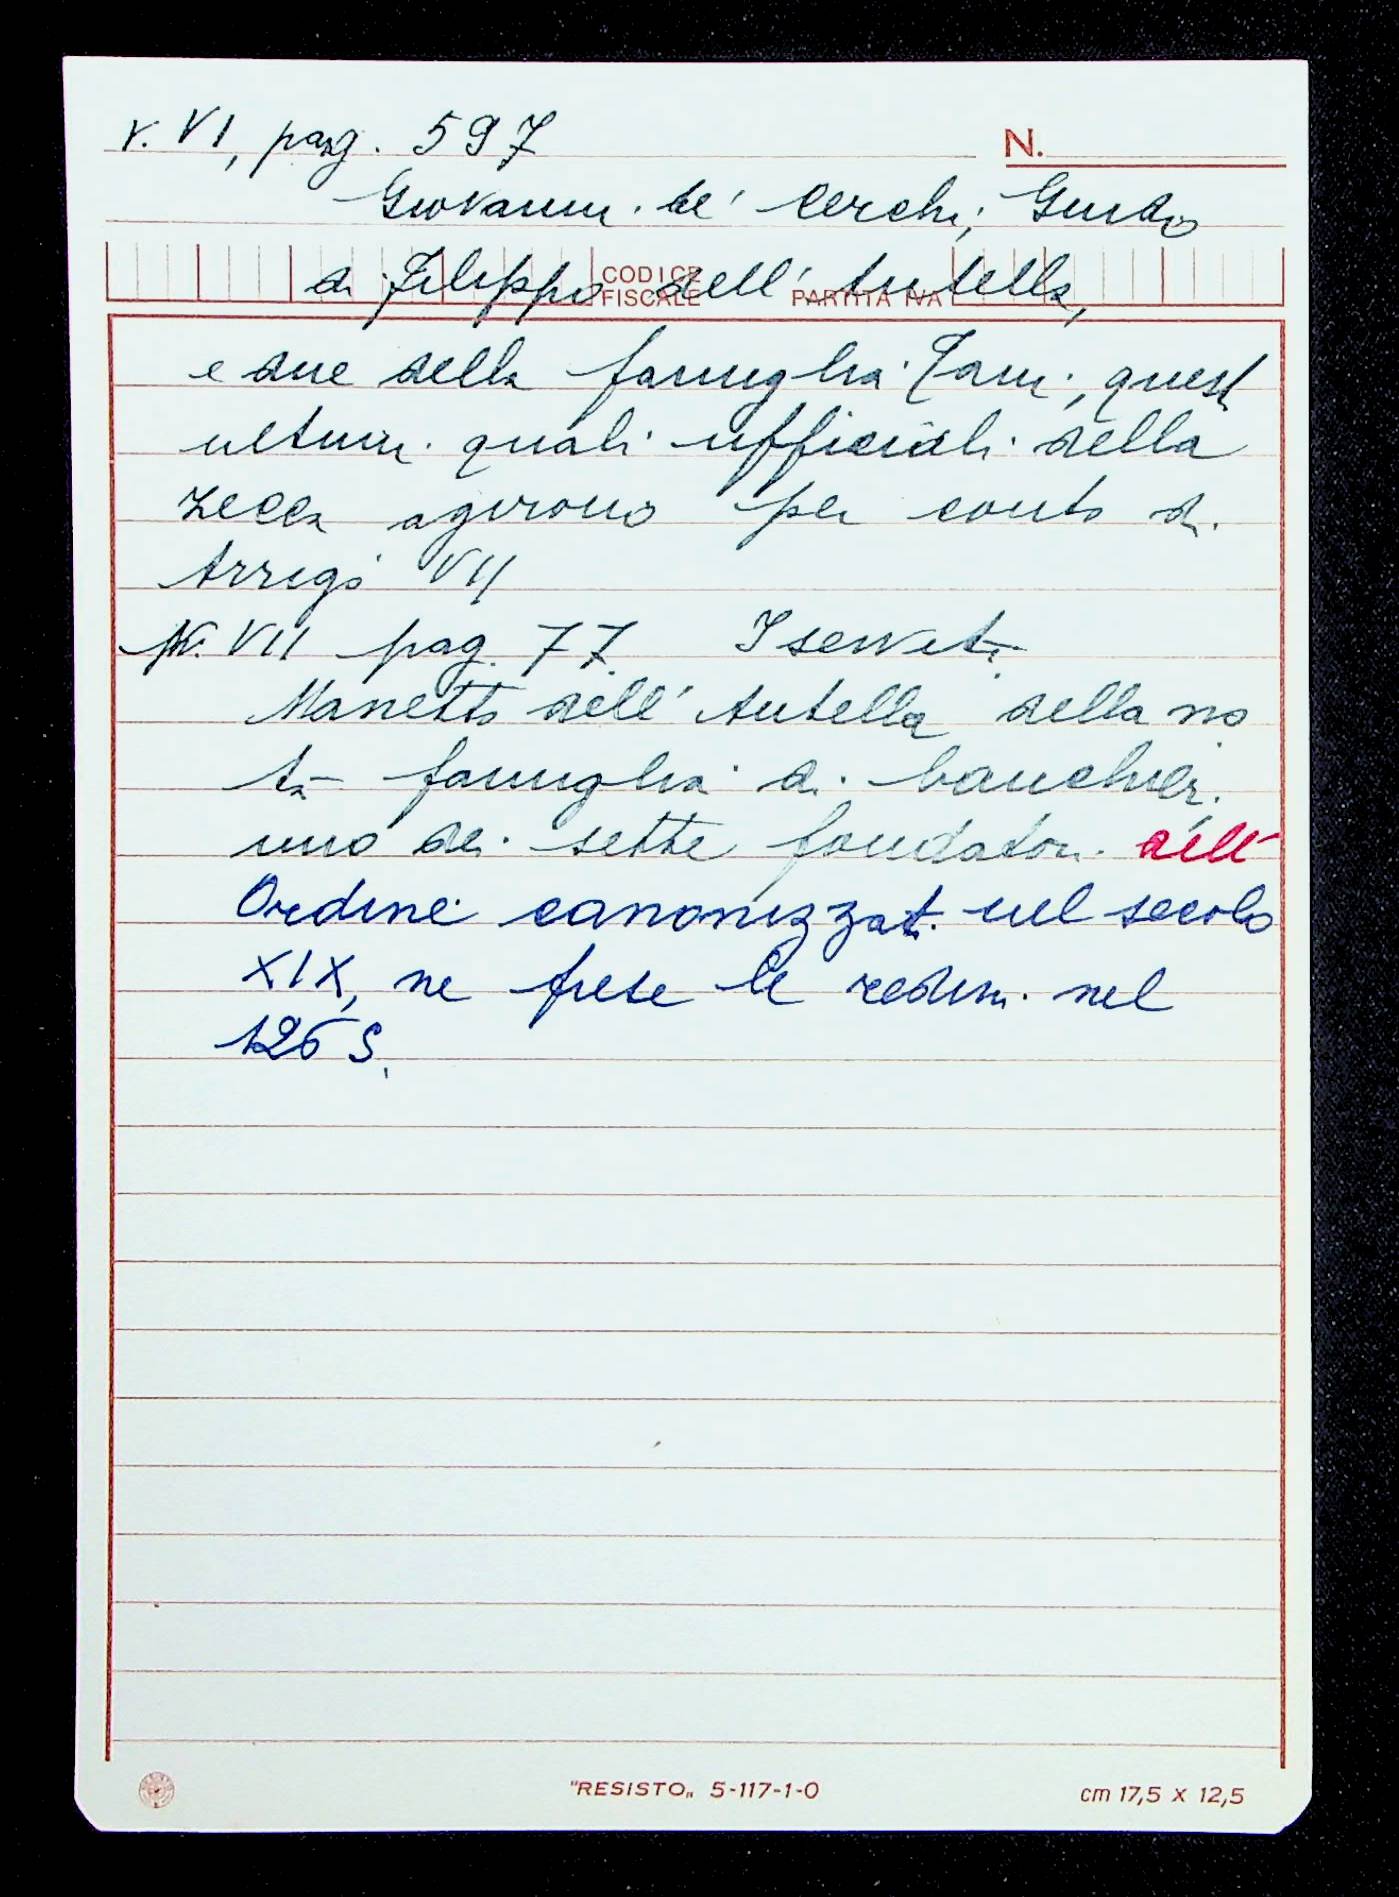 V. VI, pag. 597
N.
Giovanni de' Cerchi, Guido
di Filippo dell'Antella,
CODICE FISCALE
PARTITA IVA
e due della famiglia, quest
ultimi quali ufficiali della
zecca agirono per conto di
Arrigo VII
V. VII pag. 77 I serviti
Manetto dell'Antella della no
ta famiglia di banchieri,
uno dei sette fondatori dell'
Ordine canonizzati nel secolo
XIX, ne prese le redini nel
1265.
"RESISTO" 5-117-1-0
cm 17,5 x 12,5